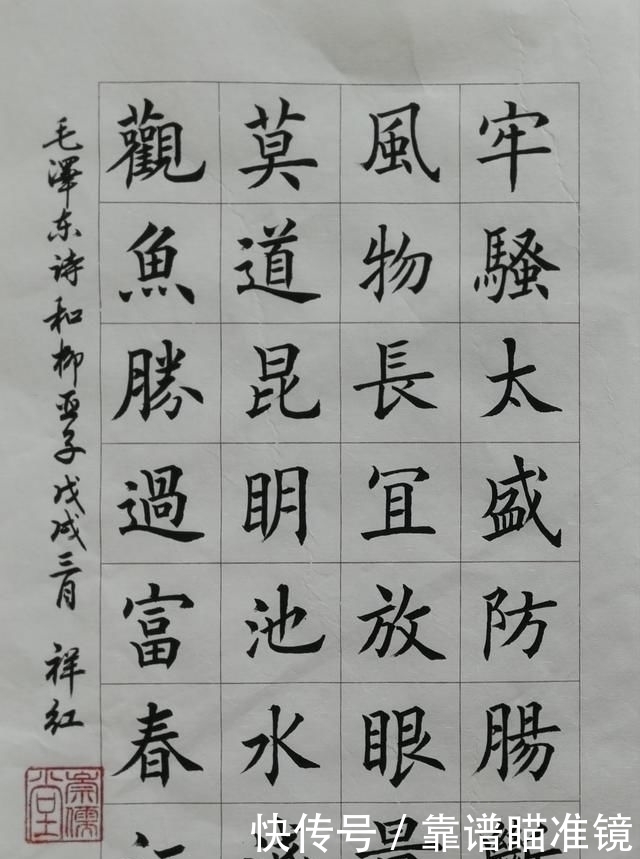 牢騷太盛防腸
風物長冝放眼
莫道昆明池水
觀魚勝過富春
毛澤东诗和柳亚子戊戌三月 祥红
崇儒堂
快传号/靠谱瞄准镜